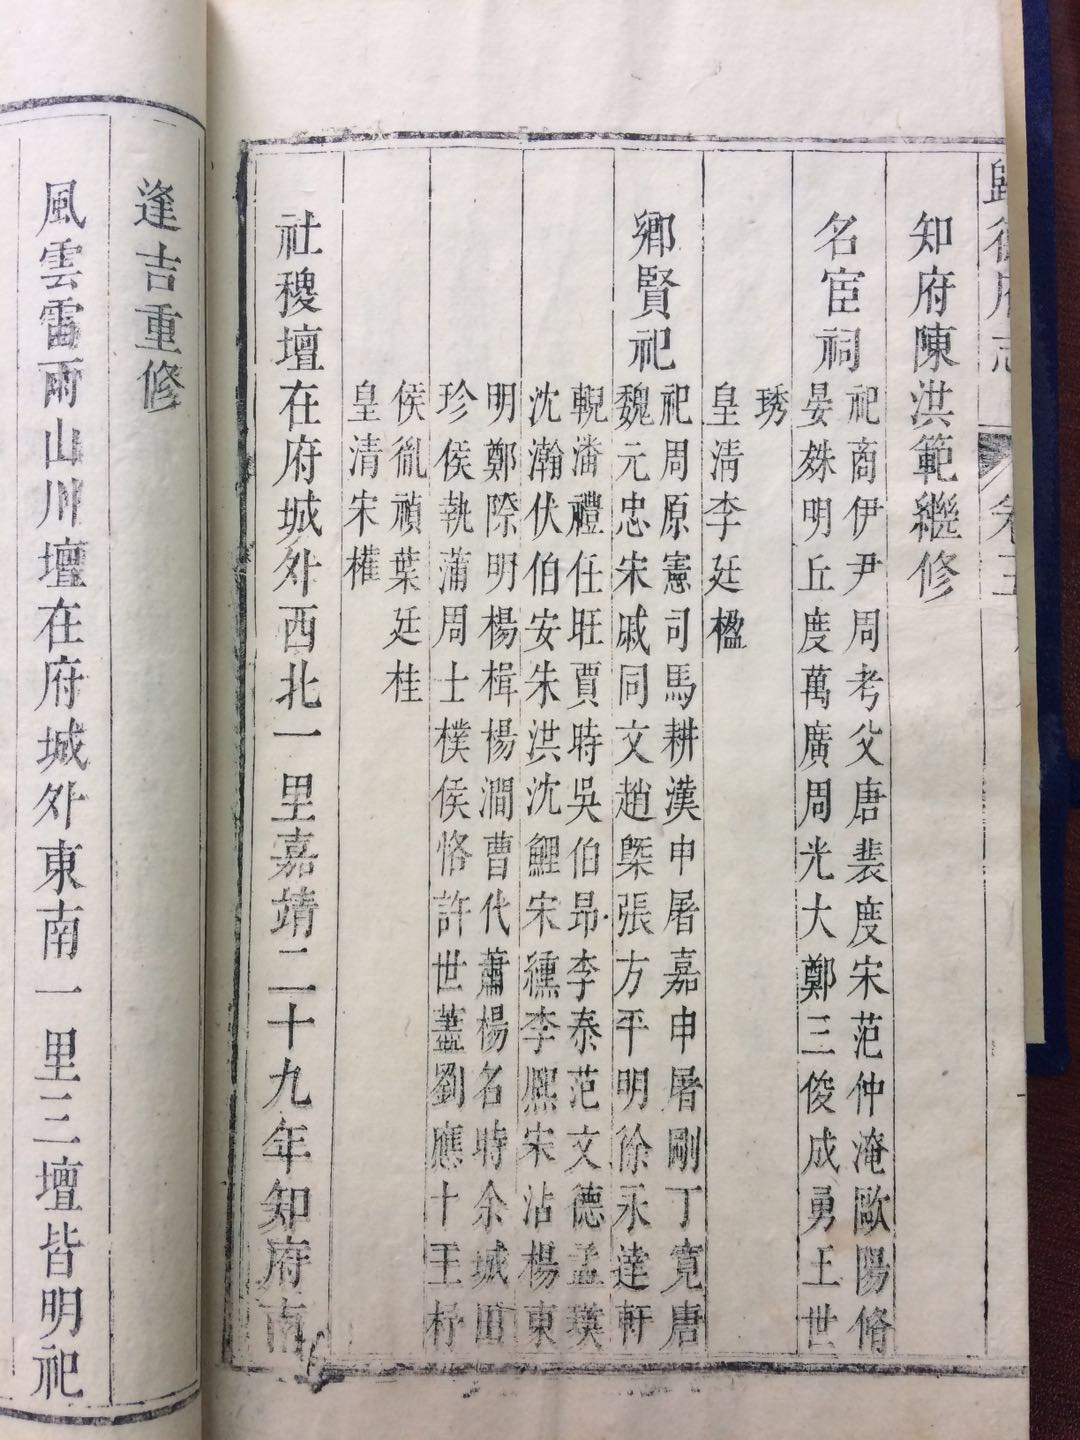 歸德府志
卷三
知府陳洪範繼修
名宦祠
祀商伊尹周考父唐裴度宋范仲淹歐陽脩
晏殊明丘度萬廣周光大鄭三俊成勇王世
琇
皇清李廷楹
鄉賢祀
祀周原憲司馬耕漢申屠嘉申屠剛丁寬唐
魏元忠宋戚同文趙槩張方平明徐永達軒
輗潘禮任旺賈時吳伯昂李泰范文德孟瑛
沈瀚伏伯安朱洪沈鯉宋纁李熈宋沾楊東
明鄭際明楊楫楊澗曹代蕭楊名時余城田
珍侯執蒲周士樸侯恪許世藎劉應十王杼
侯胤禎葉廷桂
皇清宋權
社稷壇在府城外西北一里嘉靖二十九年知府南
逢吉重修
風雲雷雨山川壇在府城外東南一里三壇皆明祀